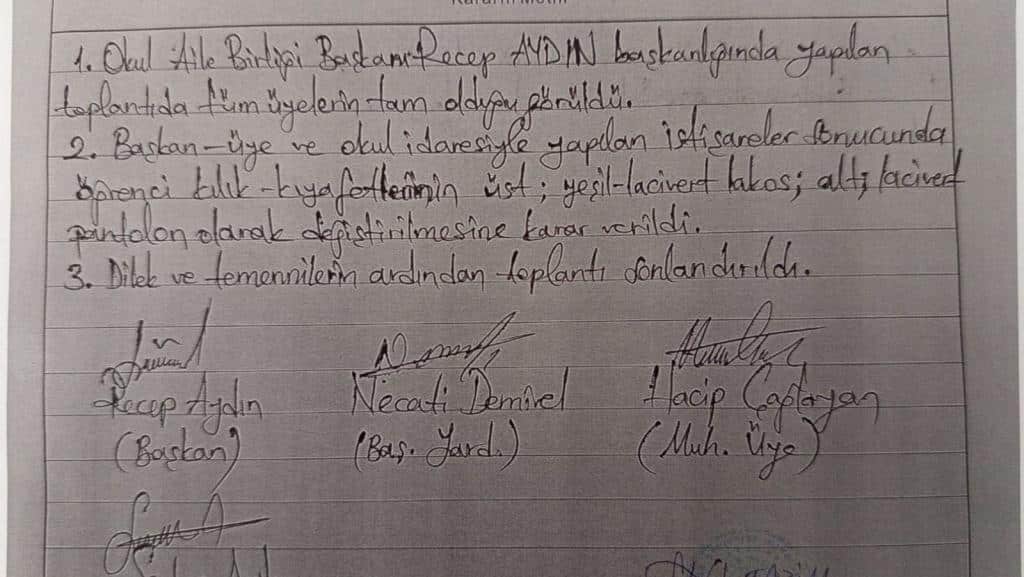 Kararın Metni
1. Okul Aile Birliği Başkanı Recep AYDIN başkanlığında yapılan
toplantıda tüm üyelerin tam olduğu görüldü.
2. Başkan-üye ve okul idaresiyle yapılan istişareler sonucunda
öğrenci kılık-kıyafetlerinin üst; yeşil-lacivert lakos; alt; lacivert
pantolon olarak değiştirilmesine karar verildi.
3. Dilek ve temennilerin ardından toplantı sonlandırıldı.
Recep Aydın Necati Demirel Hacip Çaplayan
(Başkan) (Baş. Yard.) (Muh. Üye)